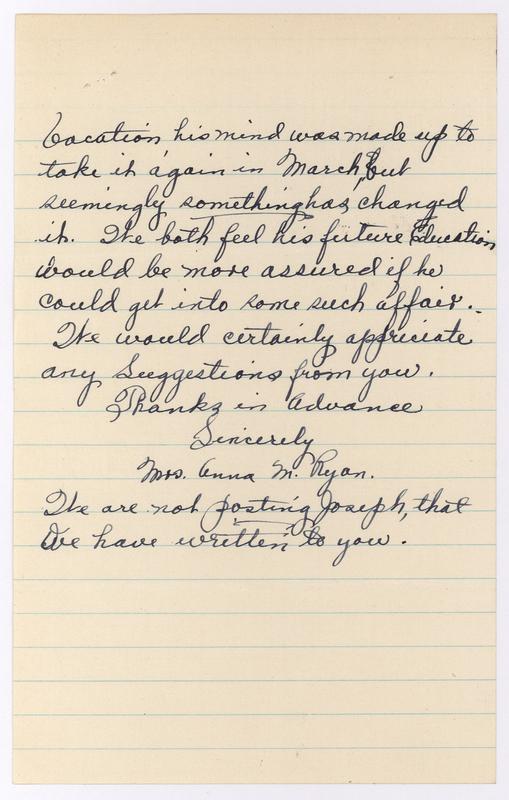 Vacation his mind was made up to
take it again in March, but
seemingly something has changed
it. We both feel his future Education
would be more assured if he
could get into some such affair.
We would certainly appriciate
any Suggestions from you.
Thanks in Advance
Sincerely
Mrs. Anna M. Ryan.
We are not posting Joseph, that
We have written to you.